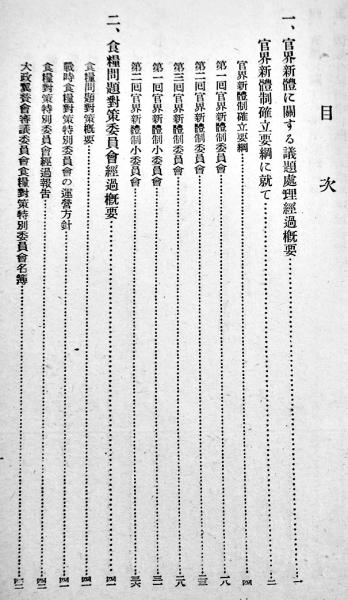 目次
一、官界新體に關する議題處理經過概要……一
官界新體制確立要綱に就て……二
官界新體制確立要綱……四
第一回官界新體制委員會……八
第二回官界新體制委員會……三
第三回官界新體制委員會……八
第一回官界新體制小委員會……三一
第二回官界新體制小委員會……三六
二、食糧問題對策委員會經過概要……四一
食糧問題對策概要……四一
戰時食糧對策特別委員會の運營方針……四一
食糧對策特別委員會經過報告……四二
大政翼賛會審議委員會食糧對策特別委員會名簿……四三